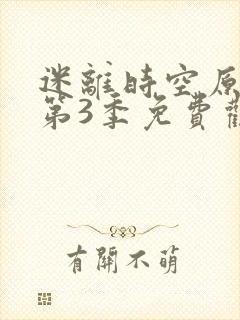 迷離時空原
第3季免費
有關不萌